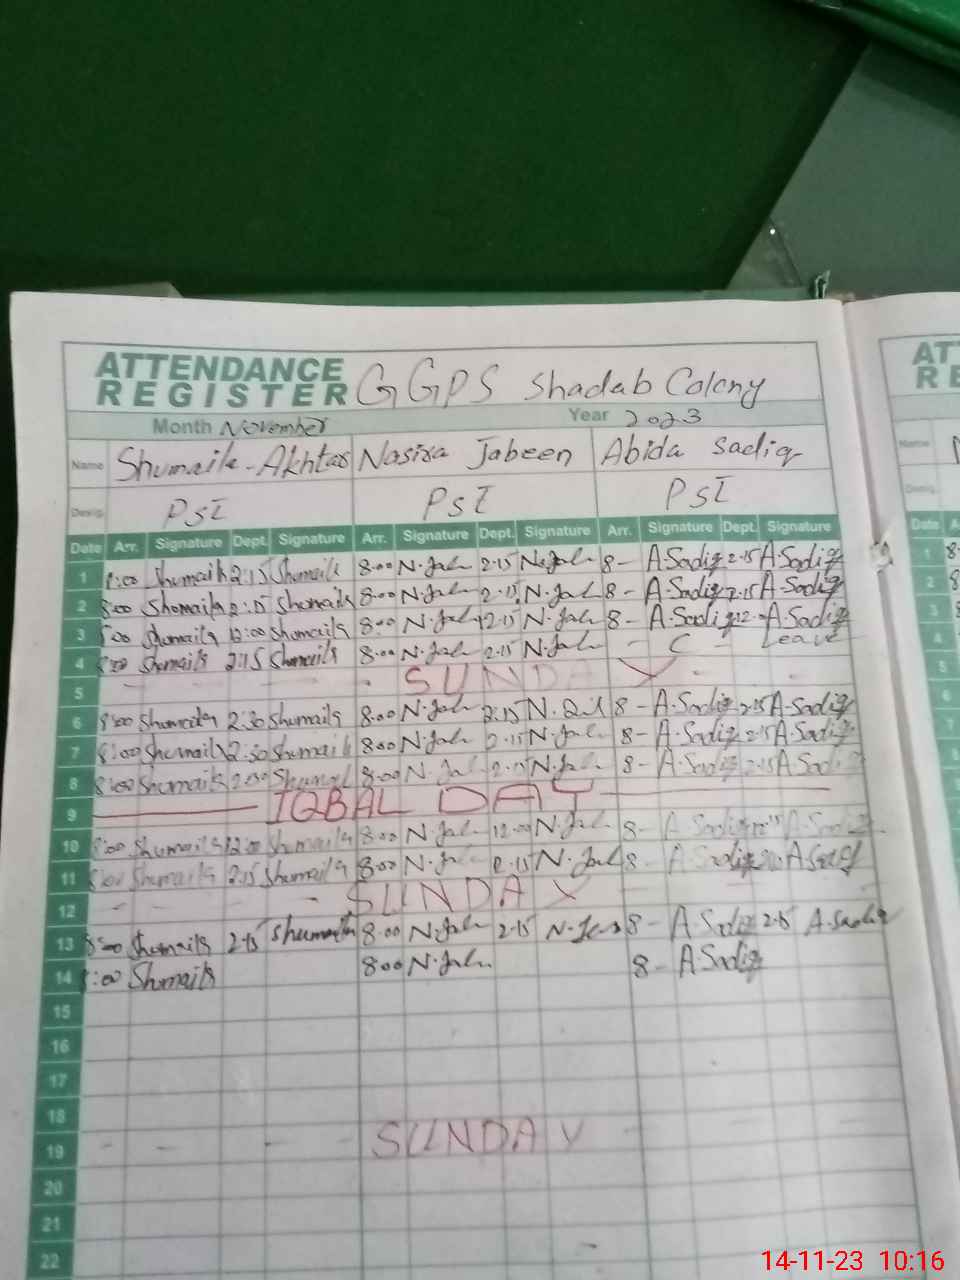 ATTENDANCE REGISTER GGPS Shadab Colony
Month November Year 2023
Name Shumaila-Akhtar Nasira Jabeen Abida Sadiq
Desig. PST PST PST
Date Arr. Signature Dept. Signature Arr. Signature Dept. Signature Arr. Signature Dept. Signature
1 8:00 Shumaila 2:15 Shumaila 8:00 N.Jab 2:15 N.Jab 8- A.Sadiq 2:15 A.Sadiq
2 8:00 Shumaila 2:15 Shumaila 8:00 N.Jab 2:15 N.Jab 8- A.Sadiq 2:15 A.Sadiq
3 8:00 Shumaila 12:00 Shumaila 8:00 N.Jab 12:15 N.Jab 8- A.Sadiq 12- A.Sadiq
4 8:00 Shumaila 2:15 Shumaila 8:00 N.Jab 2:15 N.Jab - C - Leave
5 SUNDAY
6 8:00 Shumaila 2:30 Shumaila 8:00 N.Jab 2:15 N. 8- A.Sadiq 2:15 A.Sadiq
7 8:00 Shumaila 2:30 Shumaila 8:00 N.Jab 2:15 N.Jab 8- A.Sadiq 2:15 A.Sadiq
8 8:00 Shumaila 8:00 N.Jab N.Jab 8- A.Sadiq 2:15 A.Sadiq
9 IQBAL DAY
10 8:00 Shumaila 12:00 Shumaila 8:00 N.Jab 12:00 N.Jab 8- A.Sadiq A.Sadiq
11 8:00 Shumaila 2:15 Shumaila 8:00 N.Jab 2:15 N.Jab 8- A.Sadiq A.Sadiq
12 SUNDAY
13 8:00 Shumaila 2:15 Shumaila 8:00 N.Jab 2:15 N.Jab 8- A.Sadiq 2:15 A.Sadiq
14 8:00 Shumaila 8:00 N.Jab. 8- A.Sadiq
15
16
17
18
19 SUNDAY
20
21
22
AT
RE
Name
Desig.
Date A
1 8
2 8
3 8
4
5
6
7
8
9
14-11-23 10:16